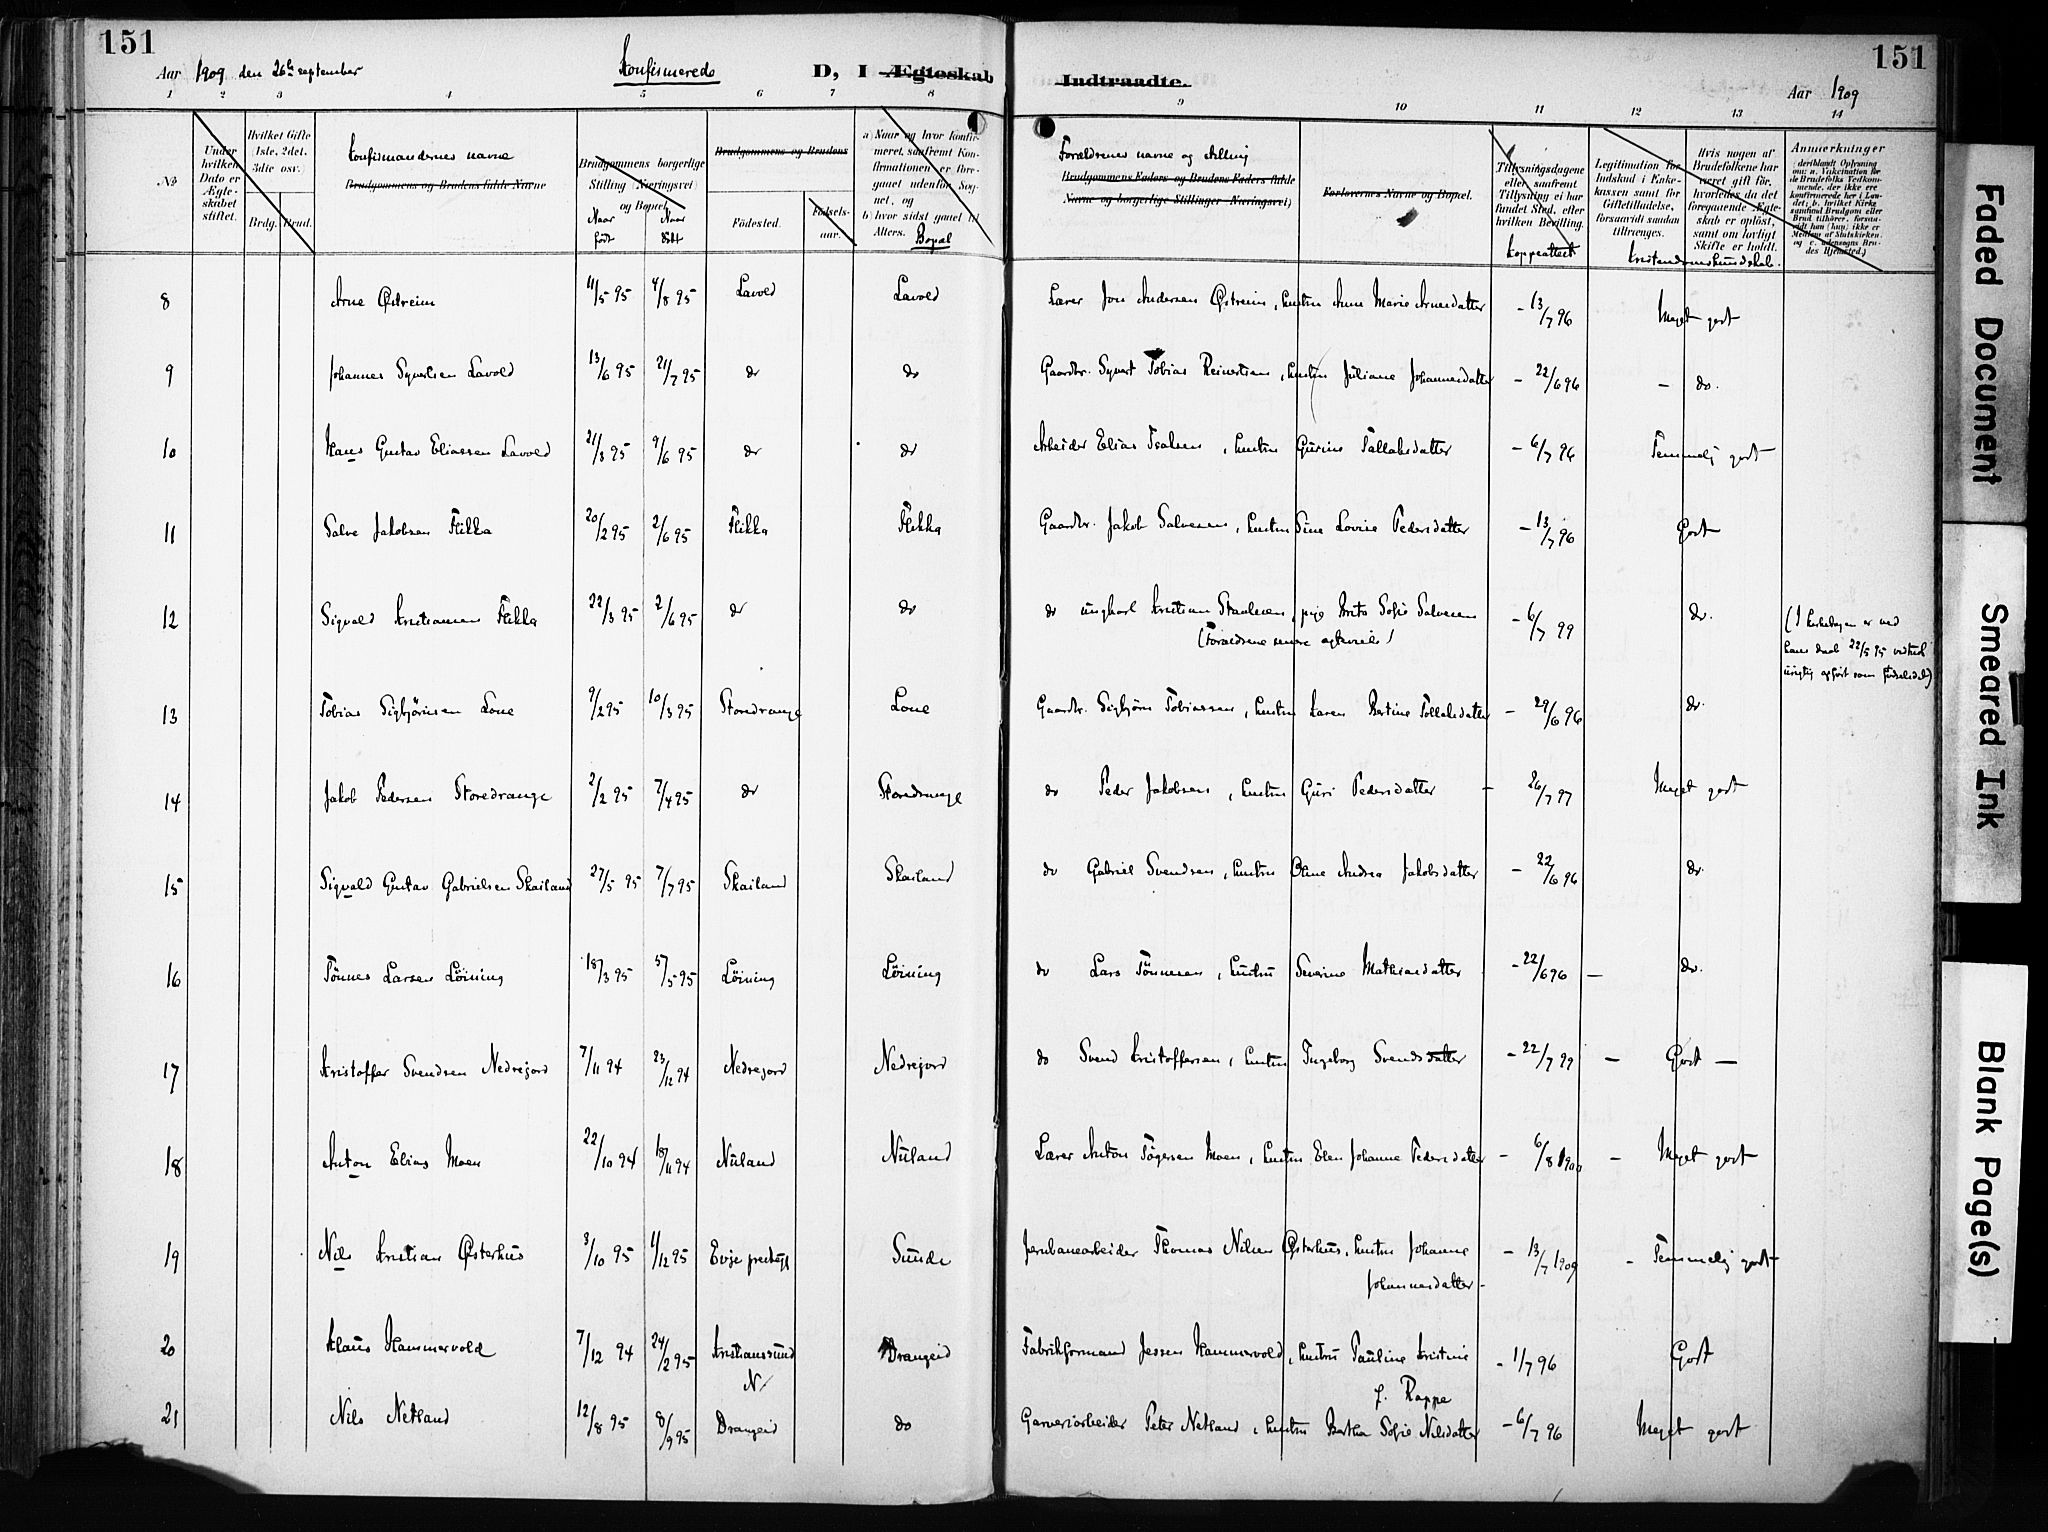 151
151
Aar 1909 den 26de september
Konfirmerede
D, I Ægteskab Indtraadte.
Aar 1909
1 2 3 4 5 6 7 8 9 10 11 12 13 14
№
Under hvilken Dato er Ægteskabet stiftet.
Hvilket Gifte (1ste, 2det, 3die osv.)
Brdg. Brud.
Konfirmandernes navne
Brudgommens og Brudens fulde Navne
Brudgommens borgerlige Stilling (Næringsvei) og Bopæl
Naar født
Naar døbt
Brudgommens og Brudens
Födested.
Fødselsaar.
a) Naar og hvor konfirmeret, saafremt Konfirmationen er foregaaet udenfor Sognet, og
b) hvor sidst gaaet til Alters.
Bopæl
Forældrenes navne og stilling
Brudgommens Faders og Brudens Faders fulde Navne og borgerlige Stillinger (Næringsvei)
Forlovernes Navne og Bopæl.
Tillysningsdagene eller saafremt Tillysning ei har fundet Sted, efter hvilken Bevilling.
Koppeattest
Legitimation for Indskud i Enkekassen samt for Giftetilladelse, forsaavidt saadan tiltrænges.
Hvis nogen af Brudefolkene har været gift før, hvorledes da det foregaaende Ægteskab er opløst, samt om lovligt Skifte er holdt.
Kristendomskundskab.
Anmærkninger
(deriblandt Oplysning om: a. Vaccination for de Brudefolks Vedkommende, der ikke ere konfirmerede her i Landet; b. hvilket Kirkesamfund Brudgom eller Brud tilhører, forsaavidt han (hun) ikke er Medlem af Statskirken, og c. udensogns Brudes Hjemsted.)
8 Arne Østreim 11/5 95 4/8 95 Lavold Lavold Lærer Jon Andersen Østreim, hustru Anne Marie Arnesdatter - 13/7 96 Meget godt
9 Johannes Syvertsen Lavold 13/6 95 21/7 95 do do Gaardbr. Syvert Tobias Reinertsen, hustru Juliane Johannesdatter - 22/6 96 - do.
10 Hans Gustav Eliassen Lavold 21/3 95 9/6 95 do do Arbeider Elias Isaksen, hustru Gurine Tallaksdatter - 6/7 96 Temmelig godt
11 Salve Jakobsen Flikka 20/2 95 2/6 95 Flikka Flikka Gaardbr. Jakob Salvesen, hustru Sine Lovise Pedersdatter - 13/7 96 Godt
12 Sigvald Kristiansen Flikka 22/3 95 2/6 95 do do do ungkarl Kristian Staalesen, pige Berte Sofie Salvesen - 6/7 99 do.
(Forældrene senere ægteviede)
(I kirkebogen er ved
hans daab 22/5 95
urigtig opført som fødselsdat.)
13 Tobias Sigbjörnsen Lone 9/2 95 10/3 95 Storedrange Lone Gaardbr. Sigbjörn Tobiassen, hustru Karen Bertine Tollaksdatter - 29/6 96 do.
14 Jakob Pedersen Storedrange 2/2 95 7/4 95 do Storedrange do Peder Jakobsen, hustru Guri Pedersdatter - 26/7 97 Meget godt
15 Sigvald Gustav Gabrielsen Skailand 27/5 95 7/7 95 Skailand Skailand do Gabriel Svendsen, hustru Oline Andrea Jakobsdatter - 22/6 96 do.
16 Tönnes Larsen Löining 18/3 95 5/5 95 Löining Löining do Lars Tönnesen, hustru Severine Mathiasdatter - 22/6 96 - do.
17 Kristoffer Svendsen Nedrejord 7/11 94 23/12 94 Nedrejord Nedrejord do Svend Kristoffersen, hustru Ingeborg Svendsdatter - 22/7 99 - Godt -
18 Anton Elias Moen 22/10 94 18/11 94 Nuland Nuland Lærer Anton Tögersen Moen, hustru Elen Johanne Pedersdatter - 6/8 1900 - Meget godt
19 Nils Kristian Østerhus 3/10 95 1/12 95 Evje prestegj. Sunde Jernbanearbeider Thomas Nilsen Østerhus, hustru Johanne - 13/7 1909 - Temmelig godt -
Johannesdatter -
20 Klaus Hammervold 7/12 94 24/2 95 Kristianssund N. Drangeid Fabrikformand Jessen Hammervold, hustru Pauline Kristine - 1/7 96 Godt
f. Rappe
21 Nils Netland 12/8 95 8/9 95 Drangeid do Garveriarbeider Peter Netland, hustru Bertha Sofie Nilsdatter - 6/7 96 Meget godt
Faded Document
Smeared Ink
Blank Page(s)